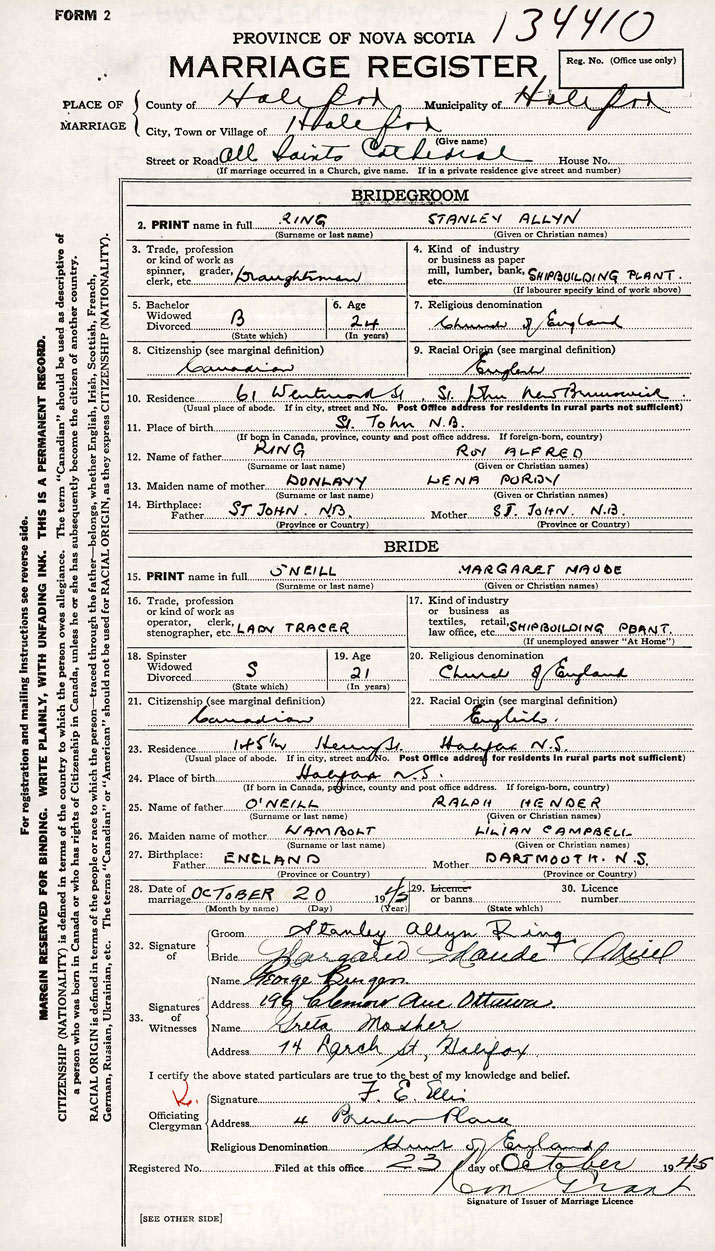 FORM 2
134410
PROVINCE OF NOVA SCOTIA
MARRIAGE REGISTER
Reg. No. (Office use only)
PLACE OF MARRIAGE
County of Halifax Municipality of Halifax
City, Town or Village of Halifax
(Give name)
Street or Road All Saints Cathedral House No.
(If marriage occurred in a Church, give name. If in a private residence give street and number)
BRIDEGROOM
2. PRINT name in full RING STANLEY ALLYN
(Surname or last name) (Given or Christian names)
3. Trade, profession or kind of work as spinner, grader, clerk, etc. Draughtsman
4. Kind of industry or business as paper mill, lumber, bank, etc. SHIPBUILDING PLANT.
(If labourer specify kind of work above)
5. Bachelor Widowed Divorced B
(State which)
6. Age 24
(In years)
7. Religious denomination
Church of England
8. Citizenship (see marginal definition)
Canadian
9. Racial Origin (see marginal definition)
English
10. Residence 61 Wentword St, St. John New Brunswick
(Usual place of abode. If in city, street and No. Post Office address for residents in rural parts not sufficient)
11. Place of birth St. John N.B.
(If born in Canada, province, county and post office address. If foreign-born, country)
12. Name of father RING ROY ALFRED
(Surname or last name) (Given or Christian names)
13. Maiden name of mother DUNLAVY LENA PURDY
(Surname or last name) (Given or Christian names)
14. Birthplace: Father ST JOHN. NB. Mother ST. JOHN. N.B.
(Province or Country) (Province or Country)
BRIDE
15. PRINT name in full O'NEILL MARGARET MAUDE
(Surname or last name) (Given or Christian names)
16. Trade, profession or kind of work as operator, clerk, stenographer, etc. LADY TRACER
17. Kind of industry or business as textiles, retail, law office, etc. SHIPBUILDING PLANT.
(If unemployed answer "At Home")
18. Spinster Widowed Divorced S
(State which)
19. Age 21
(In years)
20. Religious denomination
Church of England
21. Citizenship (see marginal definition)
Canadian
22. Racial Origin (see marginal definition)
English.
23. Residence 145 1/2 Henry St. Halifax N.S.
(Usual place of abode. If in city, street and No. Post Office address for residents in rural parts not sufficient)
24. Place of birth Halifax N.S.
(If born in Canada, province, county and post office address. If foreign-born, country)
25. Name of father O'NEILL RALPH HENDER
(Surname or last name) (Given or Christian names)
26. Maiden name of mother WAMBOLT LILIAN CAMPBELL
(Surname or last name) (Given or Christian names)
27. Birthplace: Father ENGLAND Mother DARTMOUTH. N.S.
(Province or Country) (Province or Country)
28. Date of marriage OCTOBER 20 1945
(Month by name) (Day) (Year)
29. Licence or banns
(State which)
30. Licence number
32. Signature of
Groom Stanley Allyn Ring
Bride Margaret Maude O'Neill
33. Signatures of Witnesses
Name George Burgess
Address 196 Clemow Ave Ottawa.
Name Greta Mosher
Address 74 Larch St, Halifax.
I certify the above stated particulars are true to the best of my knowledge and belief.
Officiating Clergyman
Signature F. E. Ellis
Address 4 Place
Religious Denomination Church of England
Registered No. Filed at this office 23 day of October 1945
Grant
Signature of Issuer of Marriage Licence
[SEE OTHER SIDE]
For registration and mailing instructions see reverse side.
MARGIN RESERVED FOR BINDING. WRITE PLAINLY, WITH UNFADING INK. THIS IS A PERMANENT RECORD.
CITIZENSHIP (NATIONALITY) is defined in terms of the country to which the person owes allegiance. The term "Canadian" should be used as descriptive of
a person who was born in Canada or who has rights of Citizenship in Canada, unless he or she has subsequently become the citizen of another country.
RACIAL ORIGIN is defined in terms of the people or race to which the person—traced through the father—belongs, whether English, Irish, Scottish, French,
German, Russian, Ukrainian, etc. The terms "Canadian" or "American" should not be used for RACIAL ORIGIN, as they express CITIZENSHIP (NATIONALITY).